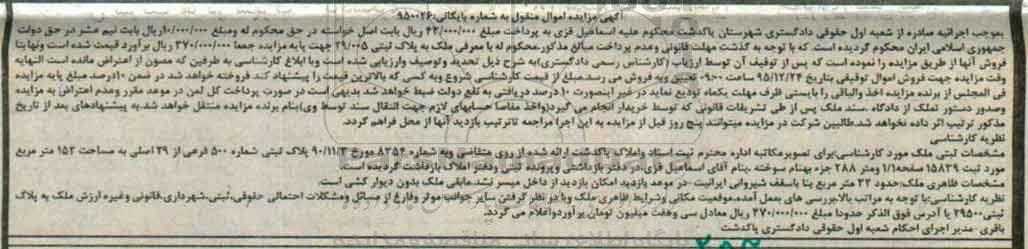 آگهی مزایده اموال منقول به شماره بایگانی:۹۵۰۰۲۶
بموجب اجرائیه صادره از شعبه اول حقوقی دادگستری شهرستان پاکدشت محکوم علیه اسماعیل قزی به پرداخت مبلغ ۴۲/۰۰۰/۰۰۰ ریال بابت اصل خواسته در حق محکوم له ومبلغ ۱۰/۰۰۰/۰۰۰ریال بابت نیم عشر در حق دولت
جمهوری اسلامی ایران محکوم گردیده است. که با توجه به گذشت مهلت قانونی وعدم پرداخت مبالغ مذکور.محکوم له با معرفی ملک به پلاک ثبتی ۲۹/۰۰۵ جهت پایه مزایده جمعا ۳۷۰/۰۰۰/۰۰۰ ریال برآورد قیمت شده است ونهایتا
فروش آنها از طریق مزایده را نموده است که پس از توقیف آن توسط ارزیاب (کارشناس رسمی دادگستری)به شرح ذیل تحدید وتوصیف وارزیابی شده است وبا ابلاغ کارشناسی به طرفین که مصون از اعتراض مانده است النهایه
وقت مزایده جهت فروش اموال توقیفی بتاریخ ۹۵/۱۲/۲۴ ساعت ۰۹:۰۰ تعیین وبه فروش می رسد.مبلغ از قیمت کارشناسی شروع وبه کسی که بالاترین قیمت را پیشنهاد کند فروخته خواهد شد در ضمن ۱۰درصد مبلغ پایه مزایده
فی المجلس از برنده مزایده اخذ والباقی را بایستی ظرف مهلت یکماه تودیع نماید در غیر اینصورت ۱۰ درصد دریافتی به نفع دولت ضبط خواهد شد بدیهی است در صورت پرداخت کل ثمن در موعد مقرر وعدم اعتراض به مزایده
وصدور دستور تملک از دادگاه .سند ملک پس از طی تشریفات قانونی که توسط خریدار انجام می گیرد(واخذ مفاصا حسابهای لازم جهت انتقال سند توسط وی)بنام برنده مزایده منتقل خواهد شد.به پیشنهادهای بعد از تاریخ
مذکور ترتیب اثر داده نخواهد شد.طالبین شرکت در مزایده میتوانند پنج روز قبل از مزایده به این اجرا مراجعه تاترتیب بازدید آنها از محل فراهم گردد.
نظریه کارشناسی
مشخصات ثبتی ملک مورد کارشناسی:برای تصویرمکاتبه اداره محترم ثبت اسناد واملاک پاکدشت ارائه شده از روی متقاضی وبه شماره ۸۳۵۴ مورخ ۹۰/۱۱/۳ پلاک ثبتی شماره ۵۰۰ فرعی از ۲۹ اصلی به مساحت ۱۵۲ متر مربع
مورد ثبت ۱۵۸۳۹ صفحه۱/۱ ومتر ۲۸۸ جزء بهنام سوخته .بنام آقای اسماعیل قزی.در دفتر بازداشتی وپرونده ثبتی ودفتر املاک بازداشت گردیده است.
مشخصات ظاهری ملک:حدود ۳۲ متر مربع بنا باسقف شیروانی ایرانیت -در موعد بازدید امکان بازدید از داخل میسر نشد.مابقی ملک بدون دیوار کشی است.
نظریه کارشناسی:با توجه به مراتب بالا،بررسی های بعمل آمده،موقعیت مکانی وشرایط ظاهری ملک وبا در نظر گرفتن سایر جوانب موثر وفارغ از مسائل ومشکلات احتمالی حقوقی،ثبتی،شهرداری،قانونی وغیره ارزش ملک به پلاک
ثبتی۲۹۵۰۰ با آدرس فوق الذکر حدودا مبلغ ۳۷۰/۰۰۰/۰۰۰ ریال معادل سی وهفت میلیون تومان برآورد واعلام می گردد.
باقری -مدیر اجرای احکام شعبه اول حقوقی دادگستری پاکدشت